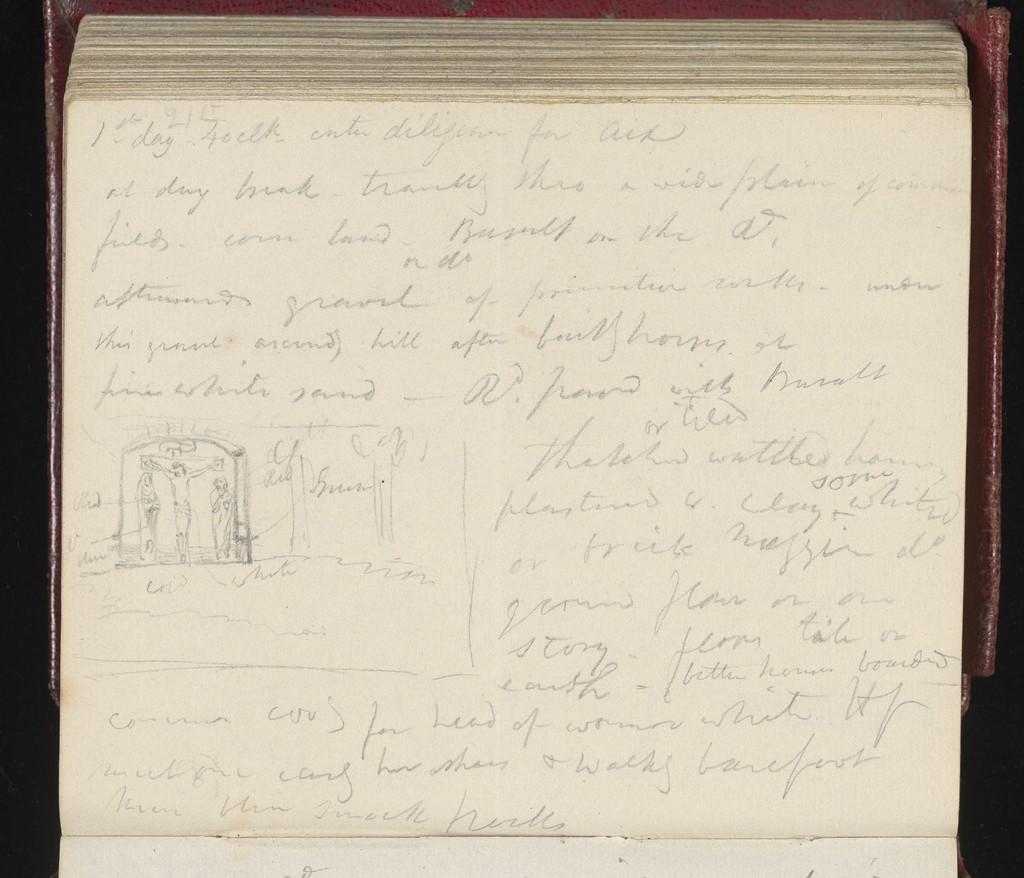 1st day 21st 4 oclk enter diligence for Aix
at day break - travellg thro a wide plain of common
fields. corn land - Basalt on the Rd.
or do
afterwards gravel of primitive rocks - under
this gravel ascendg hill after baitg horses at
fine white sand - Rd. paved with Basalt
or tiled
Thatched wattled houses
plastered w. clay some whited
or brick noggin do
ground floor or one
story - floors tile or
earth - better houses boarded
Red
Brown
B
Red
cold white
common covg for head of women white Hf
meet one carryg her shoes & walkg barefoot
Men blue smock frocks